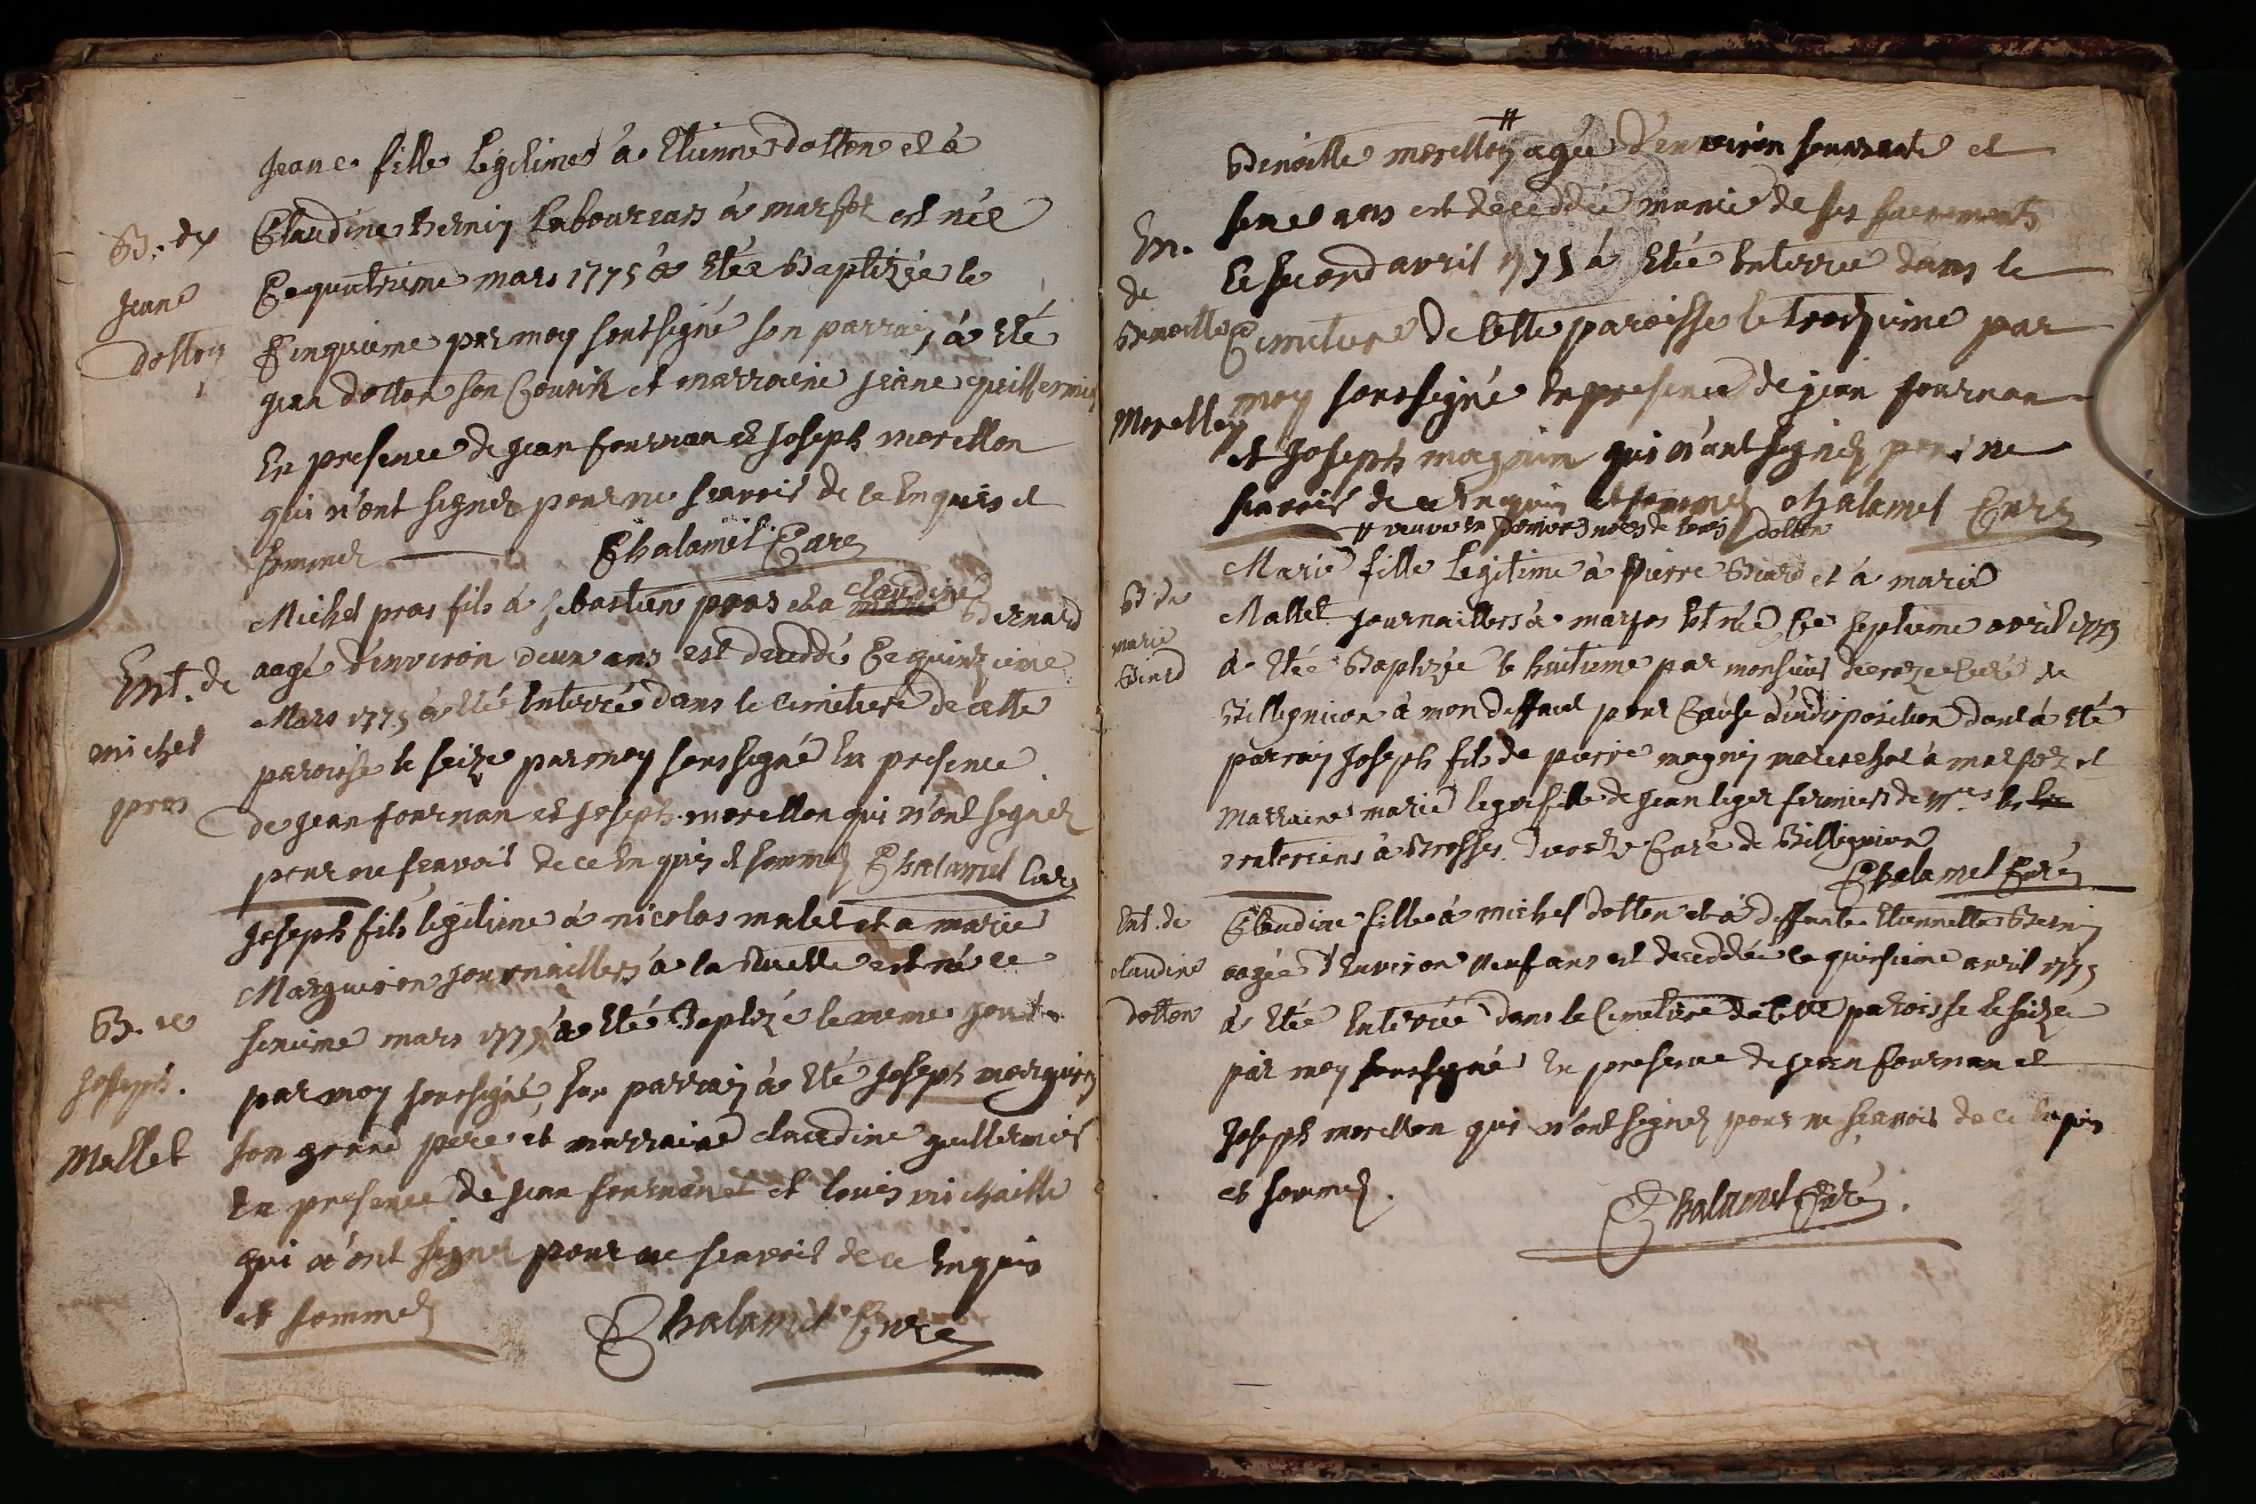 Jeane fille Légitime à Etienne dotton et à
B. de Claudine bernin Laboureurs à marfoz est née
Jeane Ce quatrieme mars 1775 à Etée Baptizée le
dotton Cinquieme par moy soussigné son parrain à Eté
jean dotton son Cousin et marraine jeane guillermin
En presence de jean fournan et joseph morellon
qui n'ont signez pour ne scavoir de ce Enquis et
sommez Chalamel Curé
Michel pras fils à sebastien pras et à claudine Bernard
Ent. de aagé d'environ deux ans est deceddé Ce quinzieme
Mars 1775 à Eté Enterré dans le Cimetiere de cette
michel paroisse le seize par moy soussigné En presence
pras de jean fournan et joseph morellon qui n'ont signez
pour ne scavoir de ce Enquis et sommez Chalamel Curé
joseph fils légitime à nicolas malet et à marie
Marguiron journaillers à la Ruelle est né ce
B. de mars 1775 à Eté Baptizé le meme jour
joseph. par moy soussigné, son parrain à Eté joseph marguiron
Mallet son grand pere et marraine claudine guillermin
En presence de jean fournan et louis michaille
qui n'ont signez pour ne scavoir de ce Enquis
et sommez Chalamel Curé
#
Benoitte morellon agée d'environ soixante et
En. ans est deceddée munie de ses sacrements
de Le second avril 1775 à Etée Enterrée dans le
Benoitte Cimetiere de Cette paroisse le troizieme par
Morellon moy soussigné En presence de jean fournan
et joseph magnin qui n'ont signez pour ne
scavoir de ce Enquis et sommez Chalamel Curé
# veuve en nôces de dotton
Marie fille Légitime à pierre Biard et à marie
B. de Mallet journaillers à marfos est née Ce septieme avril 1775
marie à Etée Baptizée le huitieme par monsieur Curé de
Biard Billignieu à mon deffaut pour Cause d'indisposition dont à Eté
parrain joseph fils de pierre magnin marechal à marfoz et
marraine marie leger fille de jean leger fermier de
à Brosses. Curé de Billignieu
Chalamel Curé
Ent. de Claudine fille à michel dotton et à deffunte Etiennette Bernin
claudine aagée d'Environ neuf ans est deceddée ce quinzieme avril 1775
dotton à Etée Enterrée dans le Cimetiere de Cette paroisse le seize
par moy soussigné En presence de jean fournan et
joseph morellon qui n'ont signez pour ne scavoir de ce Enquis
et sommez. Chalamel Curé.